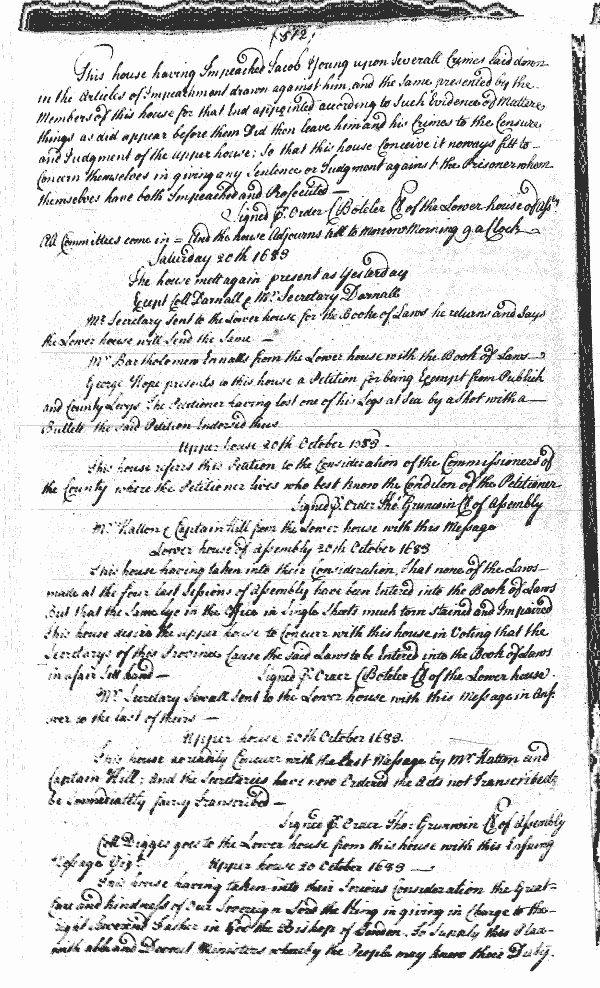 (512)
This house having Impeached Jacob Young upon Severall Crimes laid down
in the Articles of Impeachment drawn against him, and the same presented by the
Members of this house for that End appointed according to Such Evidence of Matters
things as did appear before them Did then leave him and his Crimes to the Censure
and Judgment of the upper house; So that this house Conceive it noways fitt to
Concern themselves in giving any Sentence or Judgment against the Prisoner whom
themselves have both Impeached and Prosecuted —
Signed P. Order C Boteler Cl of the Lower house of Assly
All Committees come in = And the house Adjourns till to Morrow Morning 9 a Clock
Saturday 20th 1683
The house mett again present as Yesterday
Except Coll Darnall & Mr. Secretary Darnall
Mr. Secretary Sent to the Lower house for the Booke of Laws he returns and Says
the Lower house will Send the Same —
Mr. Bartholomew Ennalls from the Lower house with the Book of Laws
George Hope presents to this house a Petition for being Exempt from Publick
and County Levys The Petitioner having lost one of his Legs at Sea by a Shot with a
Bullett the said Petition Endorsed thus
Upper house 20th October 1683.
This house referrs this Petition to the Consideration of the Commissioners of
the County where the Petitioner lives who best know the Condicion of the Petitioner
Signed P. Order Tho: Grunwin Cl of Assembly
Mr. Hatton & Captain Hill from the Lower house with this Message
Lower house of Assembly 20th October 1683
This house having taken into their Consideration, That none of the Laws
made at the four last Sessions of Assembly have been Entered into the Book of Laws
But that the Same lye in the Office in Single Sheets much torn Stained and Impaired
This house desire the upper house to Concurr with this house in Voting that the
Secretarys of this Province Cause the said Laws to be Entered into the Book of Laws
in a fair Sett hand — Signed P. Order C Boteler Cl of the Lower house.
Mr. Secretary Sewall Sent to the Lower house with this Message in Ans
wer to the last of theirs —
Upper house 20th October 1683.
This house do readily Concurr with the Last Message by Mr. Hatton and
Captain Hill; And the Secretaries have now Ordered the Acts not Transcribed
be immediately fairly transcribed —
Signed P. Order Tho: Grunwin Cl of Assembly
Coll Digges goes to the Lower house from this house with this Ensuing
Message Vizt. Upper house 20 October 1683 —
This house having taken into their Serious Consideration the Great
Care and kindness of Our Sovereign Lord the King in giving in Charge to the
Right Reverend Father in God the Bishope of London, To Supply this Place
with able and Devout Ministers whereby the People may know their Duty.